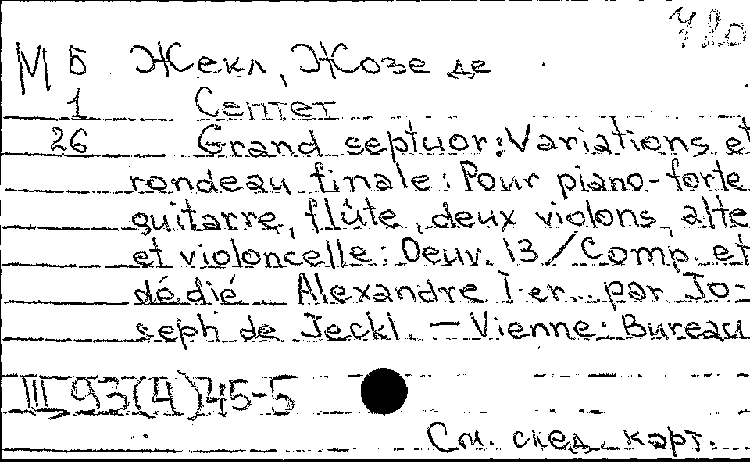 720
М Б Жекл, Жозе де
1 Септет
26 Grand septuor: Variations et
rondeau finale: Pour piano-forte
guitarre, flûte, deux violons, alte
et violoncelle: Oeuv. 13 / Comp et
dédié Alexandre I-er par Jo-
seph de Jeckl. — Vienne: Bureau
III, 93(4)45-5
См. след. карт.